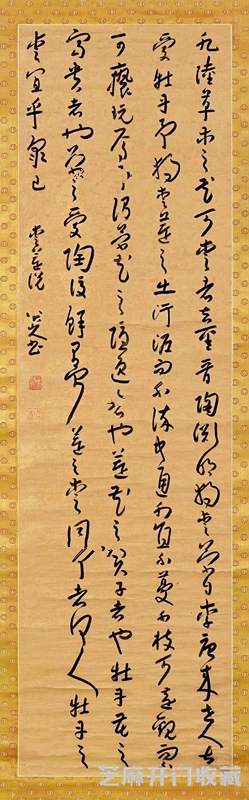 水陸草木之花可愛者甚蕃晉陶淵明獨愛菊自李唐來世人甚
愛牡丹予獨愛蓮之出汙泥而不染中通外直不蔓不枝可遠觀而不
可褻玩焉予謂菊花之隱逸者也蓮花之君子者也牡丹花之
富貴者也噫菊之愛陶後鮮有聞蓮之愛同予者何人牡丹之
愛宜乎眾已
愛蓮說
芝麻开门收藏